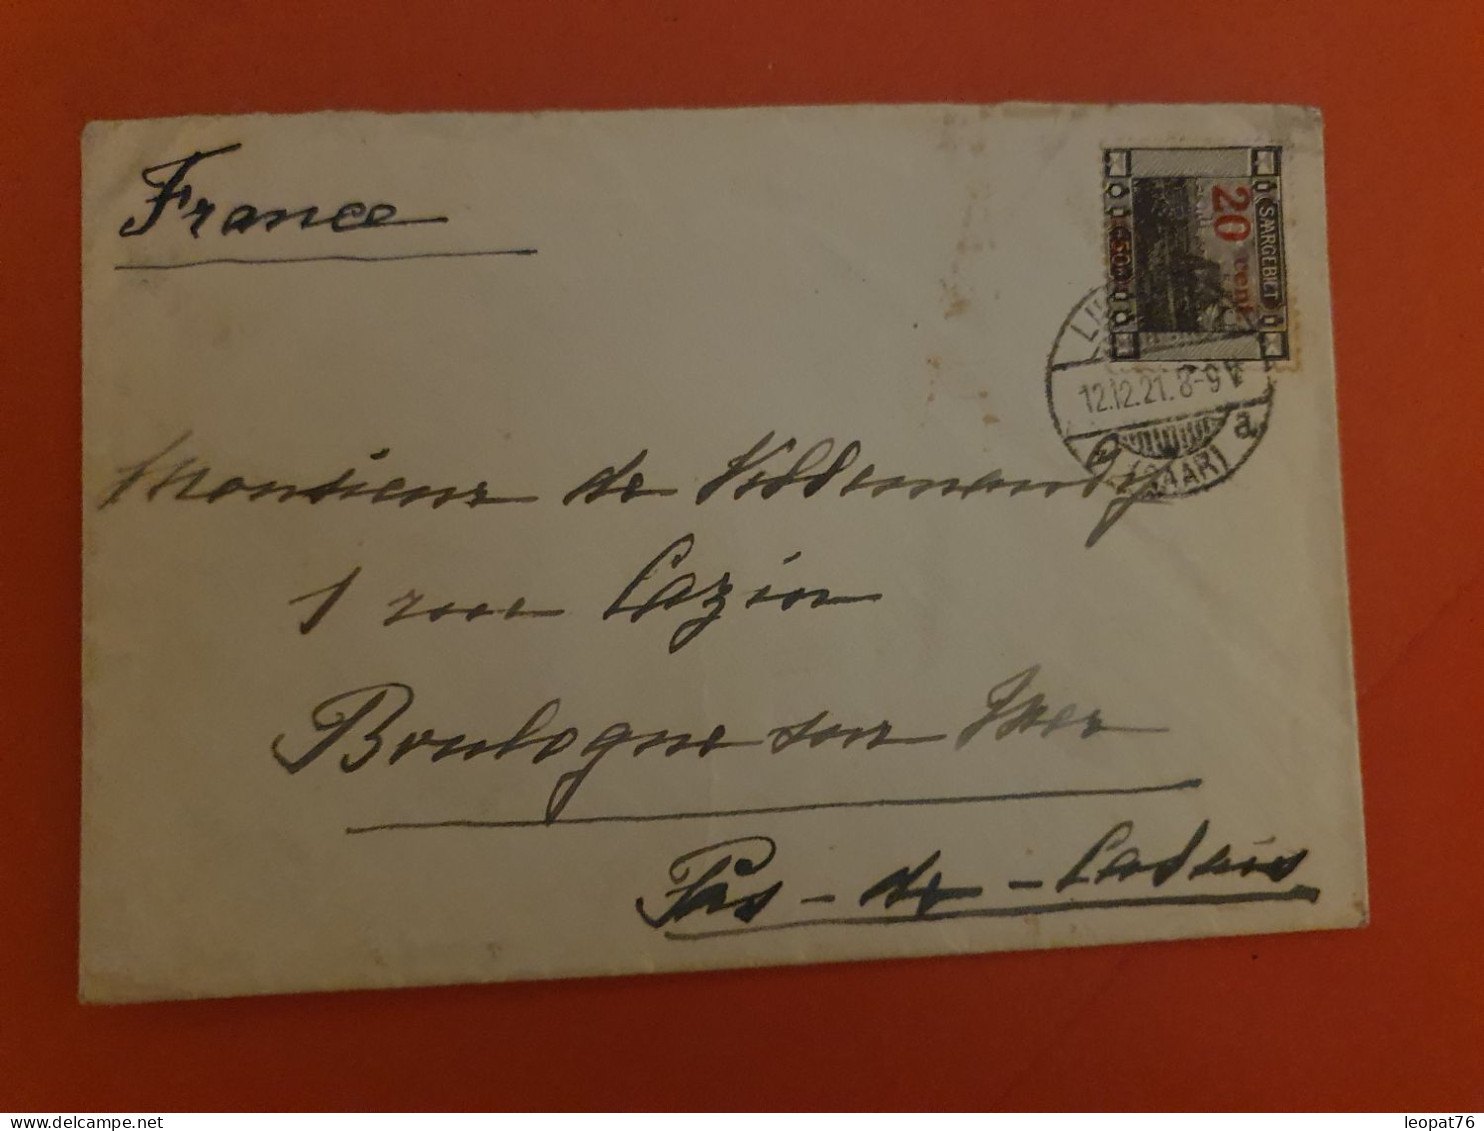 France
SAARGEBIET
20 cent
50
12.12.21. 8-9 V
a
(SAAR)
Monsieur de
1 rue Cazin
Boulogne sur Mer
Pas-de-Calais
www.delcampe.net
leopat76